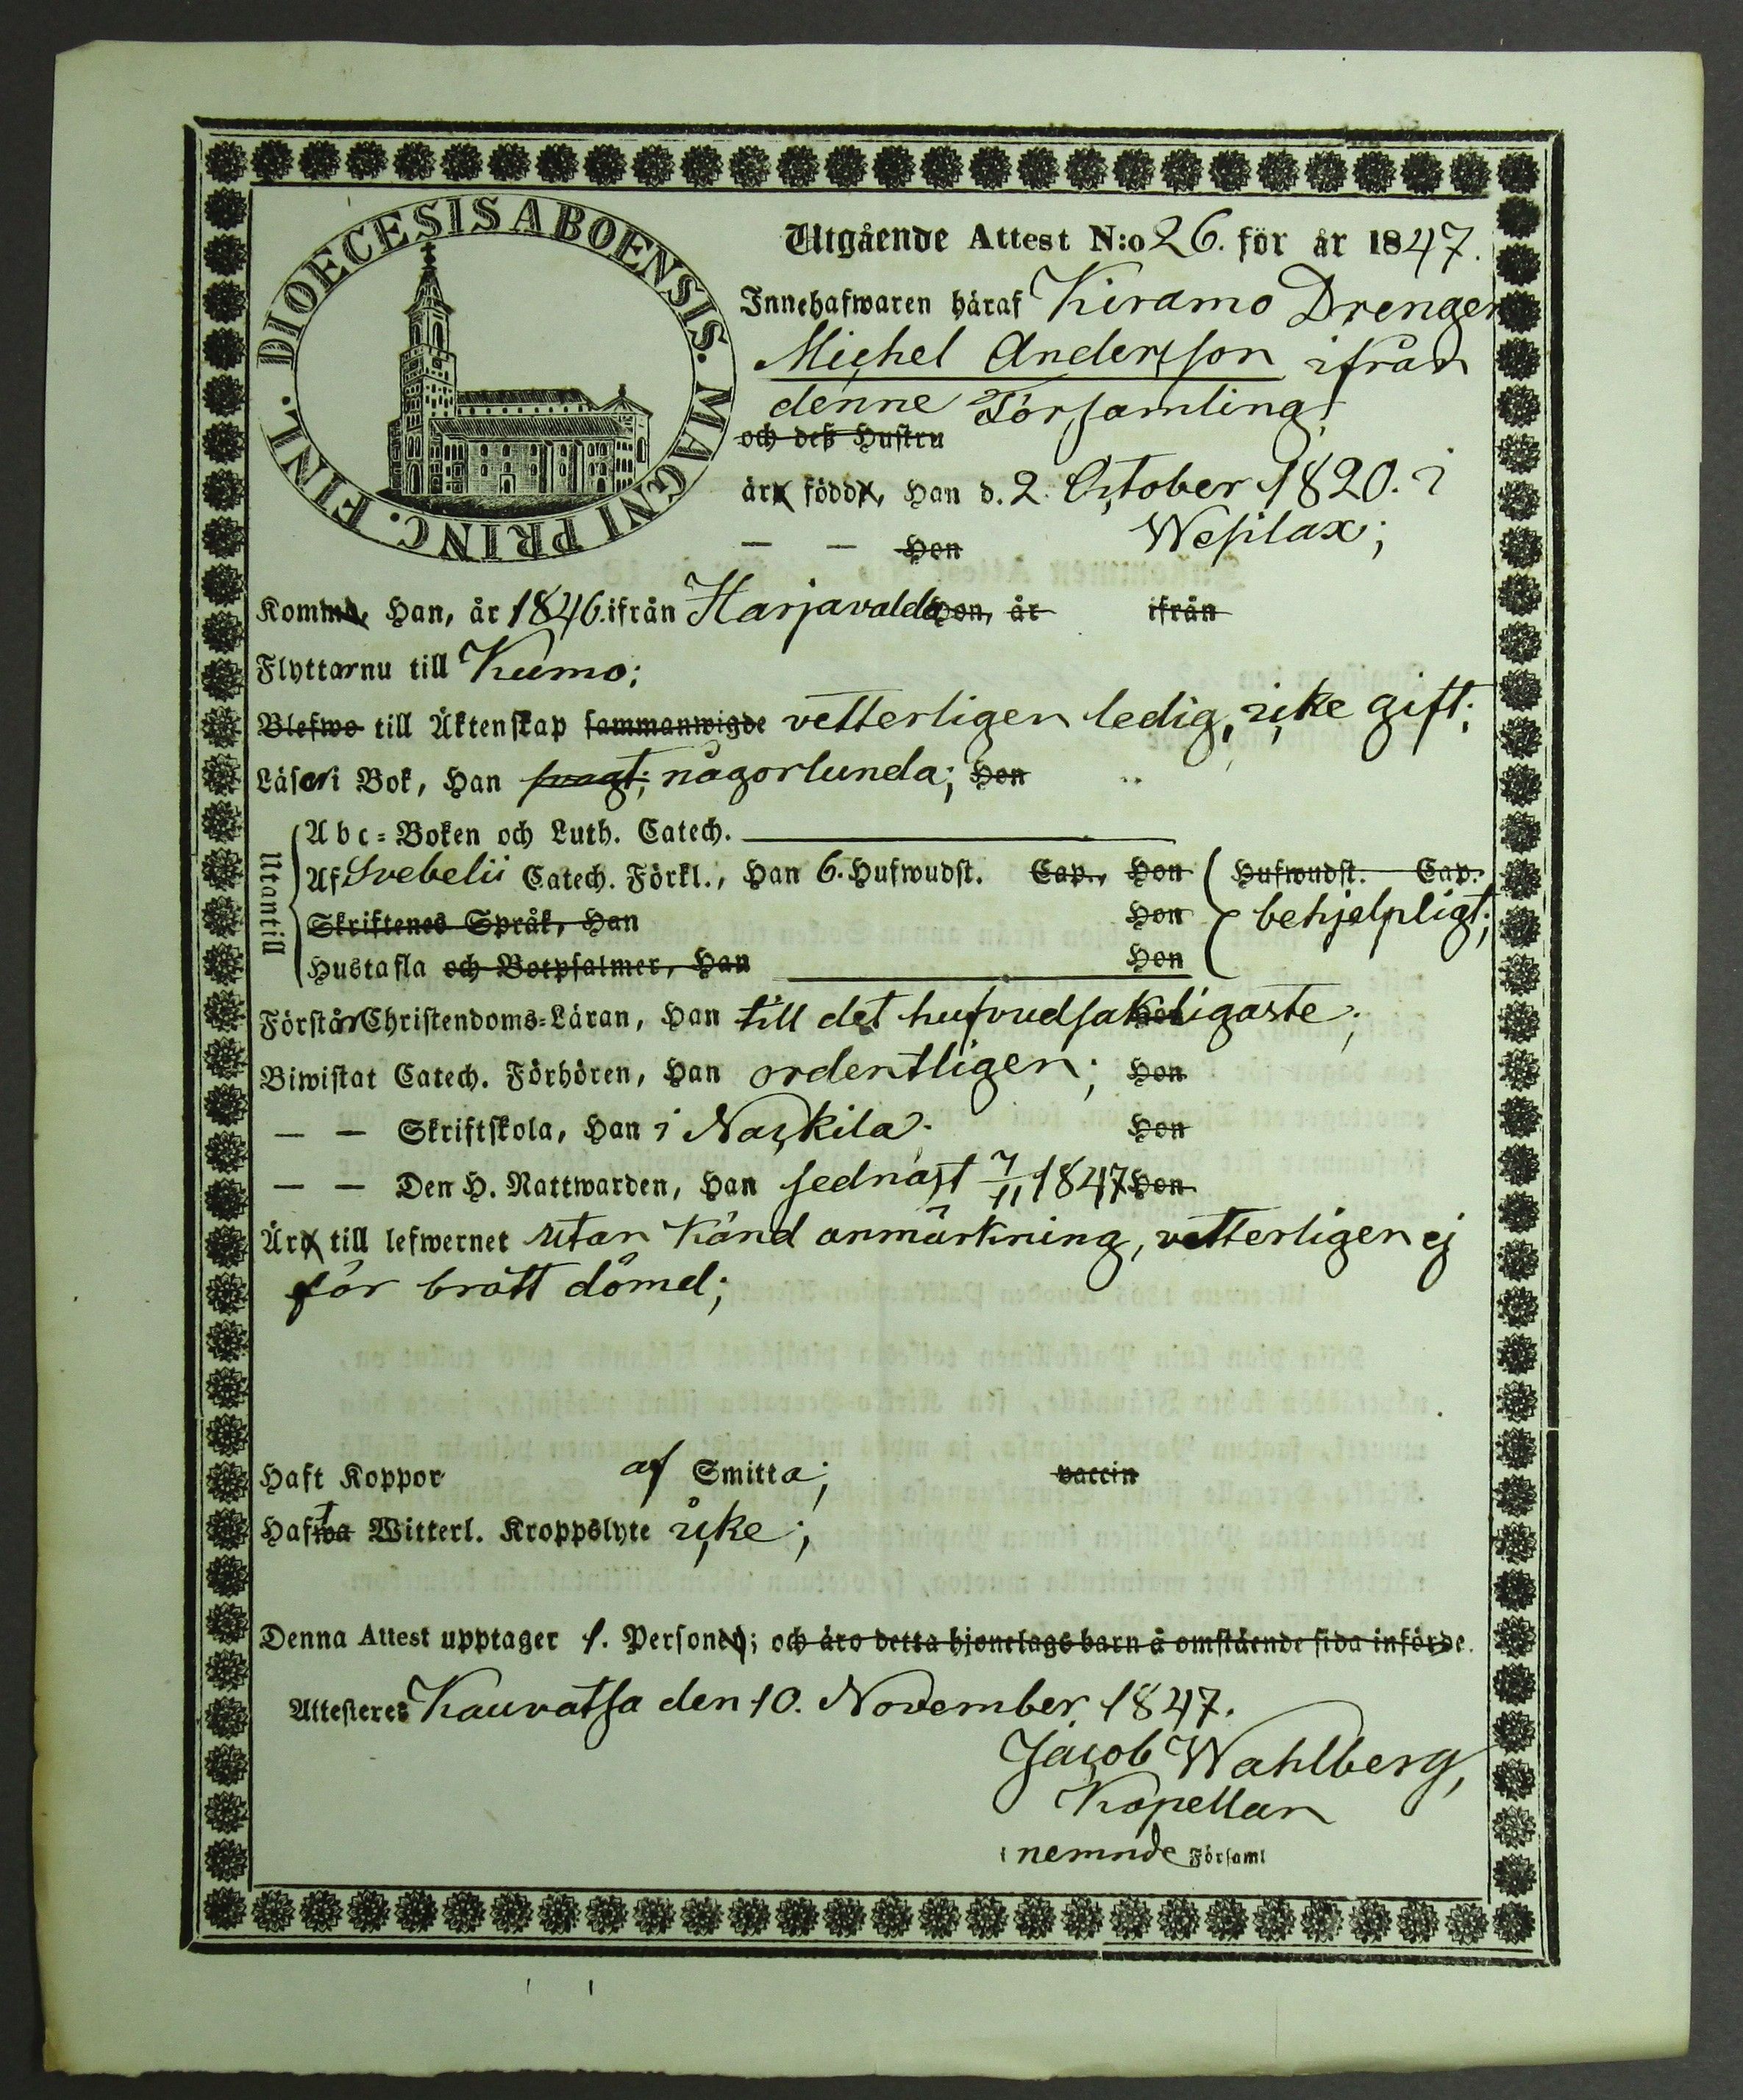 DIOECESIS ABOENSIS. MAGNI PRINC. FINL.
Utgående Attest N:o 26. för år 1847.
Innehafwaren häraf Kiramo Drengen
Michel Andersson ifrån
denne Församling;
och deß Hustru
är född, Han d. 2. October 1820. i
— — Hon Wesilax;
Kommen, Han, år 1846. ifrån Harjavalda Hon, år ifrån
Flyttar nu till Kumo;
Blefwo till Äktenskap sammanwigde vetterligen ledig, icke gift;
Läser i Bok, Han svagt; någorlunda; Hon
Utantill
Abc-Boken och Luth. Catech.
Af Svebelii Catech. Förkl., Han 6. Hufwudst. Cap., Hon Hufwudst. Cap.
Skriftenes Språk, Han Hon behjelpligt;
Hustafla och Botpsalmer, Han Hon
Förstår Christendoms-Läran, Han till det hufvudsakeligaste;
Biwistat Catech. Förhören, Han ordentligen; Hon
— — Skriftskola, Han i Nackila. Hon
— — Den H. Nattwarden, Han sednast 7/11 1847 Hon
Är till lefwernet utan känd anmärkning, vetterligen ej
för brått dömd;
Haft Koppor af Smitta; vaccin
Haft Witterl. Kroppslyte icke;
Denna Attest upptager 1. Person; och äro detta hjonelags barn å omstående sida införde.
Attesteres Kauvatsa den 10. November 1847.
Jacob Wahlberg,
Kapellan
i nemnde Församl